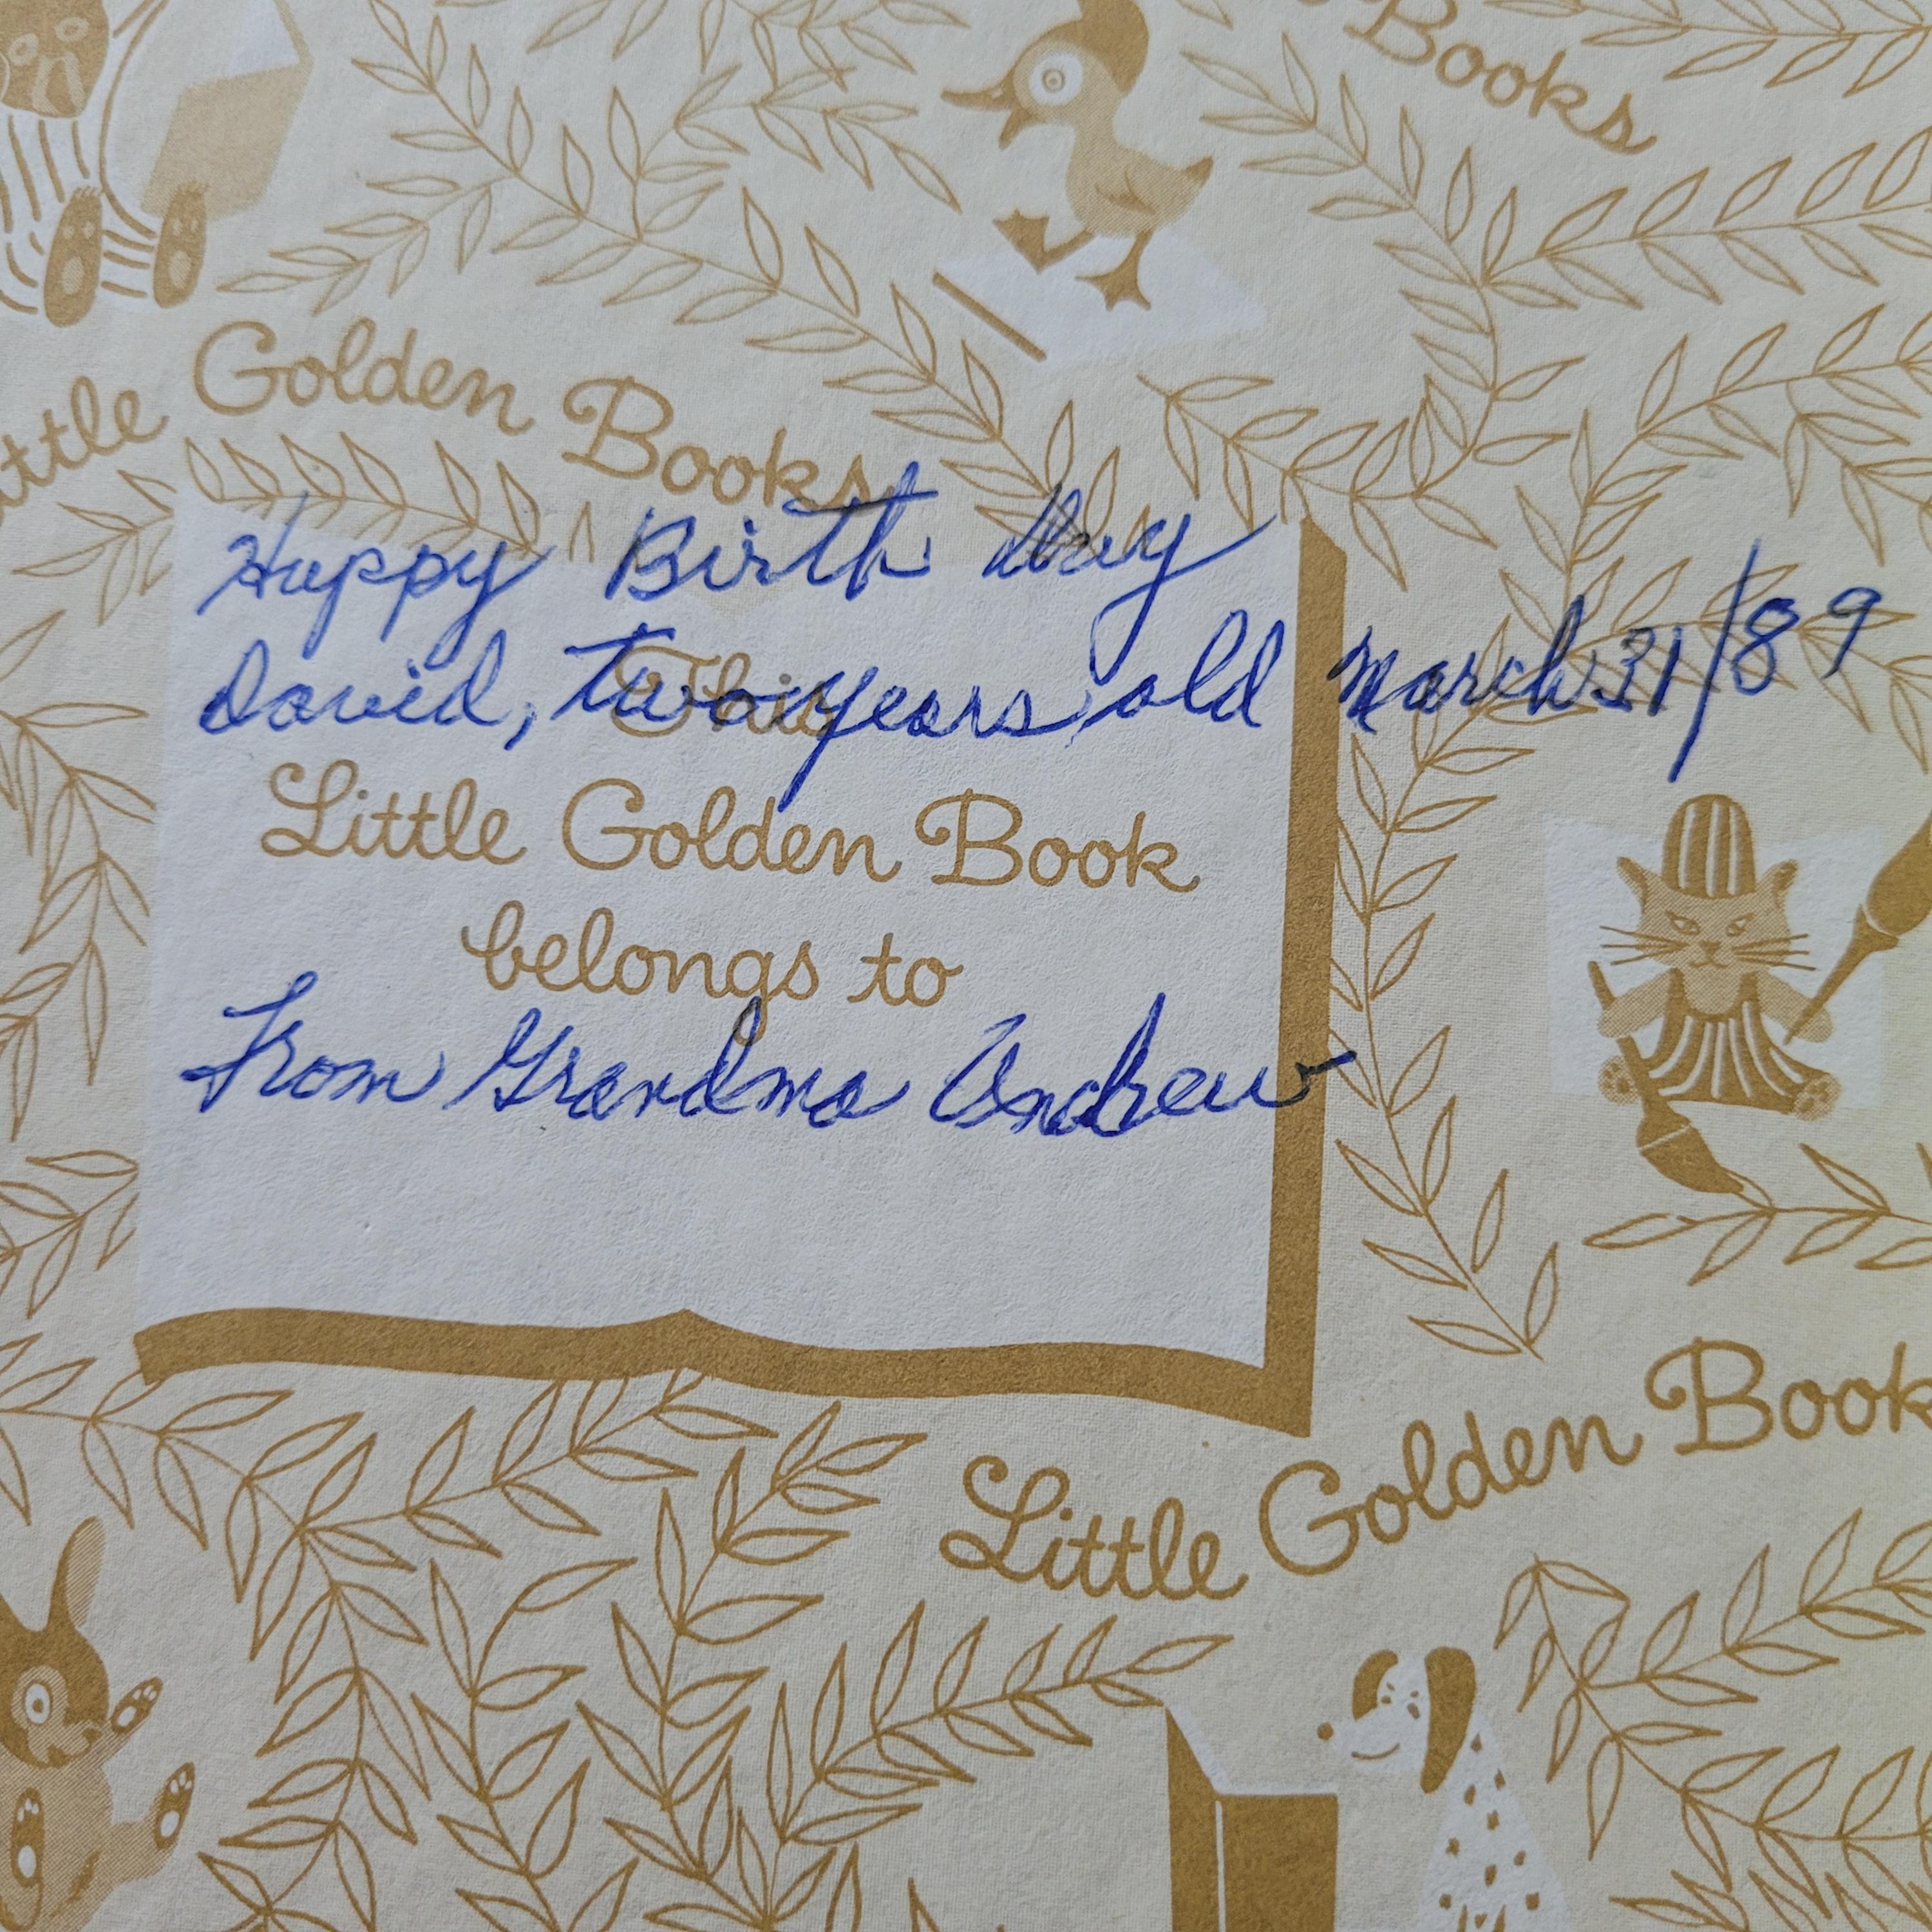 Books
ttle Golden Books
Happy Birth day
David, two years old March 31/89
This
Little Golden Book
belongs to
From Grandma Andrew
Little Golden Book